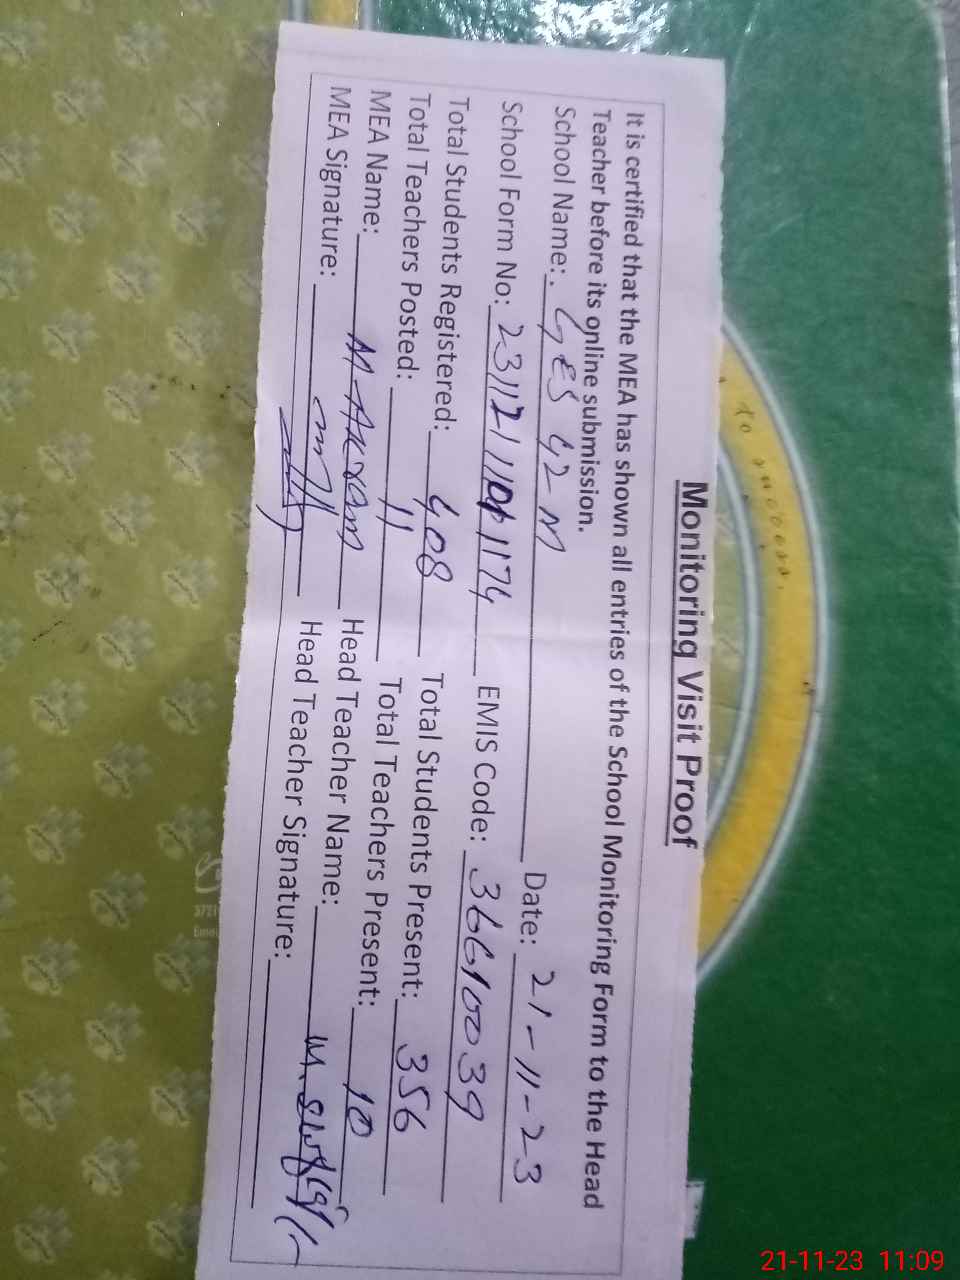 Monitoring Visit Proof
It is certified that the MEA has shown all entries of the School Monitoring Form to the Head
Teacher before its online submission.
School Name: GES 42-M Date: 21-11-23
School Form No: 23112111174 EMIS Code: 36610039
Total Students Registered: 408 Total Students Present: 356
Total Teachers Posted: 11 Total Teachers Present: 10
MEA Name: M Akram Head Teacher Name: M.
MEA Signature: Head Teacher Signature:
to success.
21-11-23 11:09